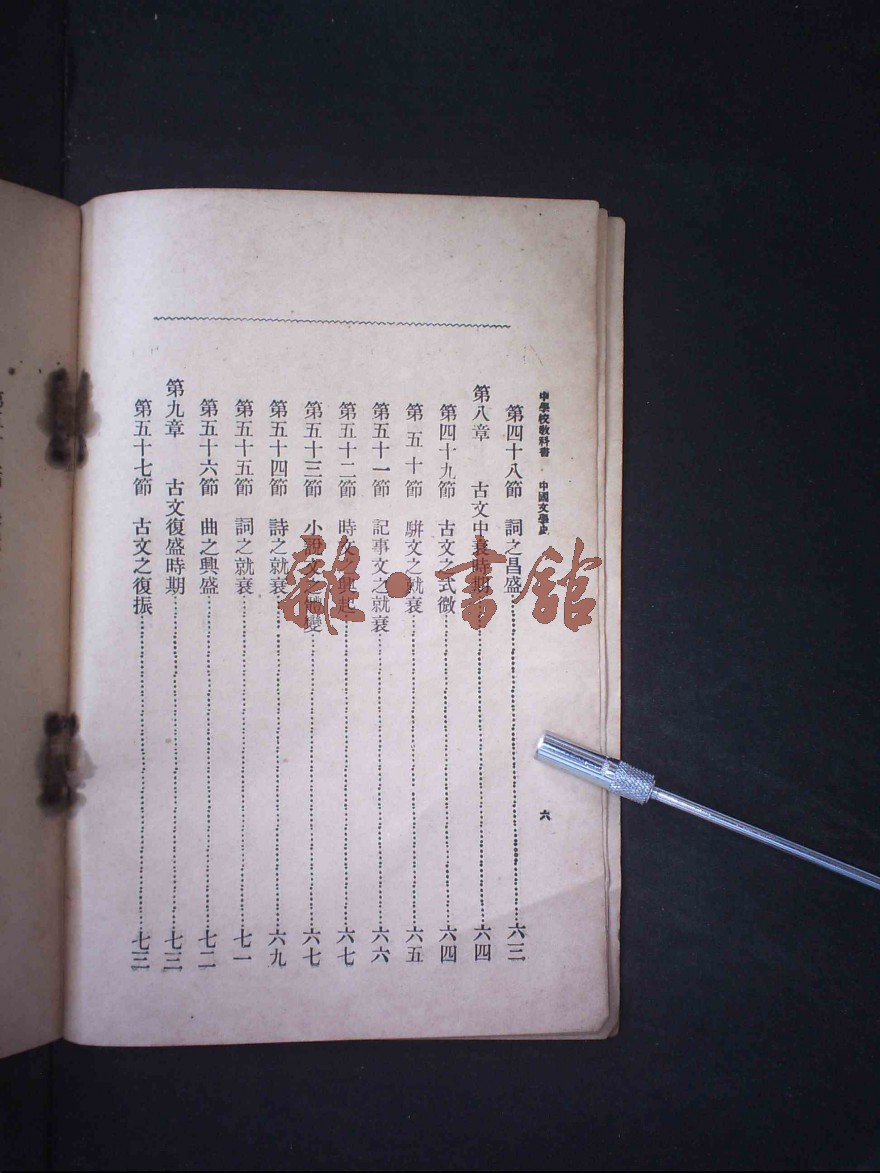 中學校敎科書 中國文學史
六
第四十八節 詞之昌盛……六三
第八章 古文中衰時期……六四
第四十九節 古文之式微……六四
第五十節 駢文之就衰……六五
第五十一節 記事文之就衰……六六
第五十二節 時文之興起……六七
第五十三節 小說文之體變……六七
第五十四節 詩之就衰……六九
第五十五節 詞之就衰……七一
第五十六節 曲之興盛……七二
第九章 古文復盛時期……七三
第五十七節 古文之復振……七三
雜·書館